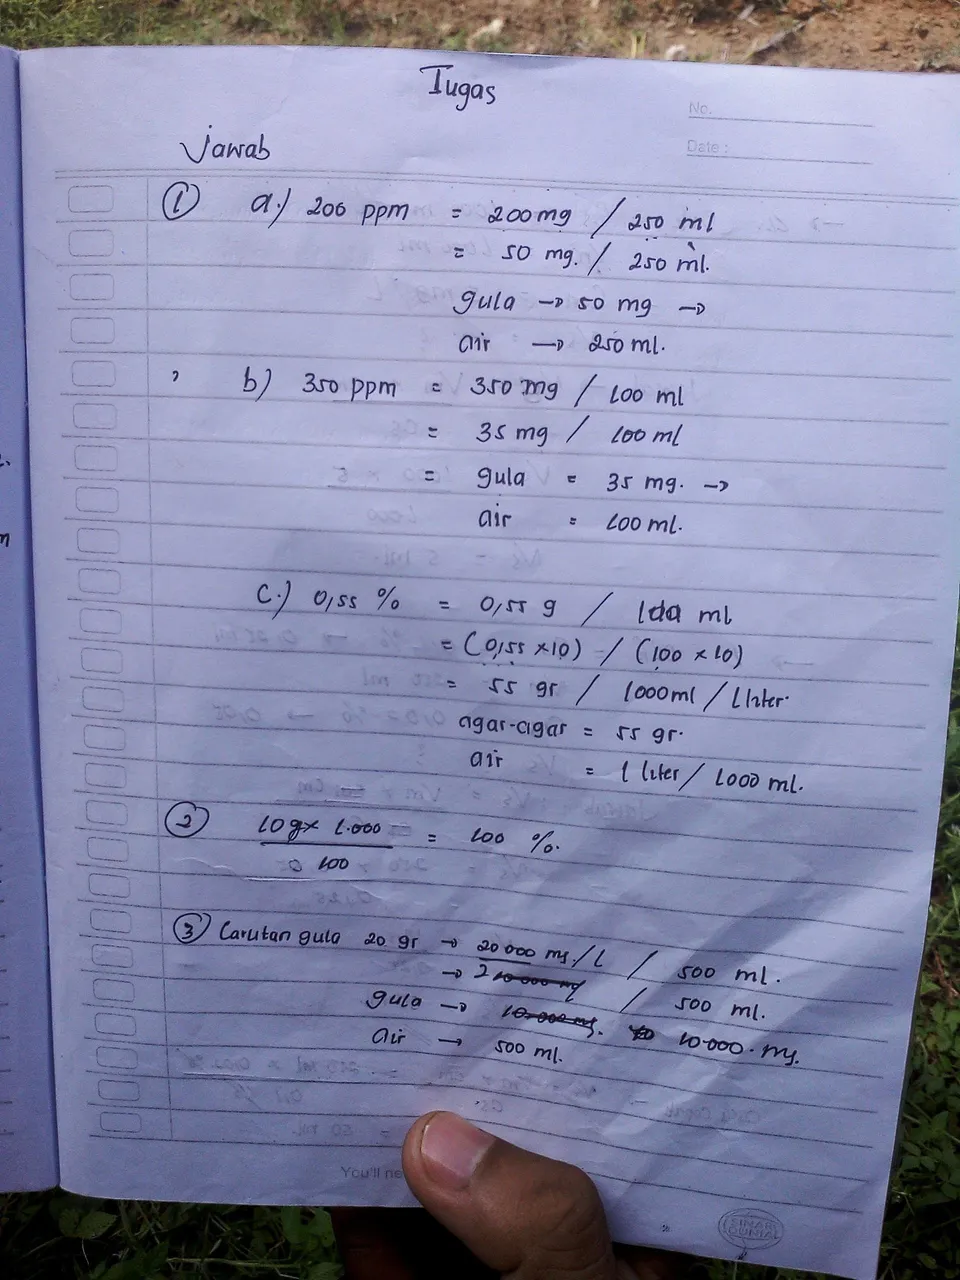 Tugas
No.
Date :
Jawab
① a.) 200 ppm = 200 mg / 250 ml
= 50 mg. / 250 ml.
gula → 50 mg →
air → 250 ml.
b) 350 ppm = 350 mg / 100 ml
= 35 mg / 100 ml
= gula = 35 mg. →
air = 100 ml.
c.) 0,55 % = 0,55 g / 100 ml
= (0,55 x 10) / (100 x 10)
= 55 gr / 1000 ml / 1 liter.
agar-agar = 55 gr.
air = 1 liter / 1000 ml.
② 10 g x 1.000 = 100 %.
100
③ Larutan gula 20 gr → 20 000 mg. / L / 500 ml.
→ / 500 ml.
gula → 10.000 mg.
air → 500 ml.
You'll ne
SINAR DUNIA